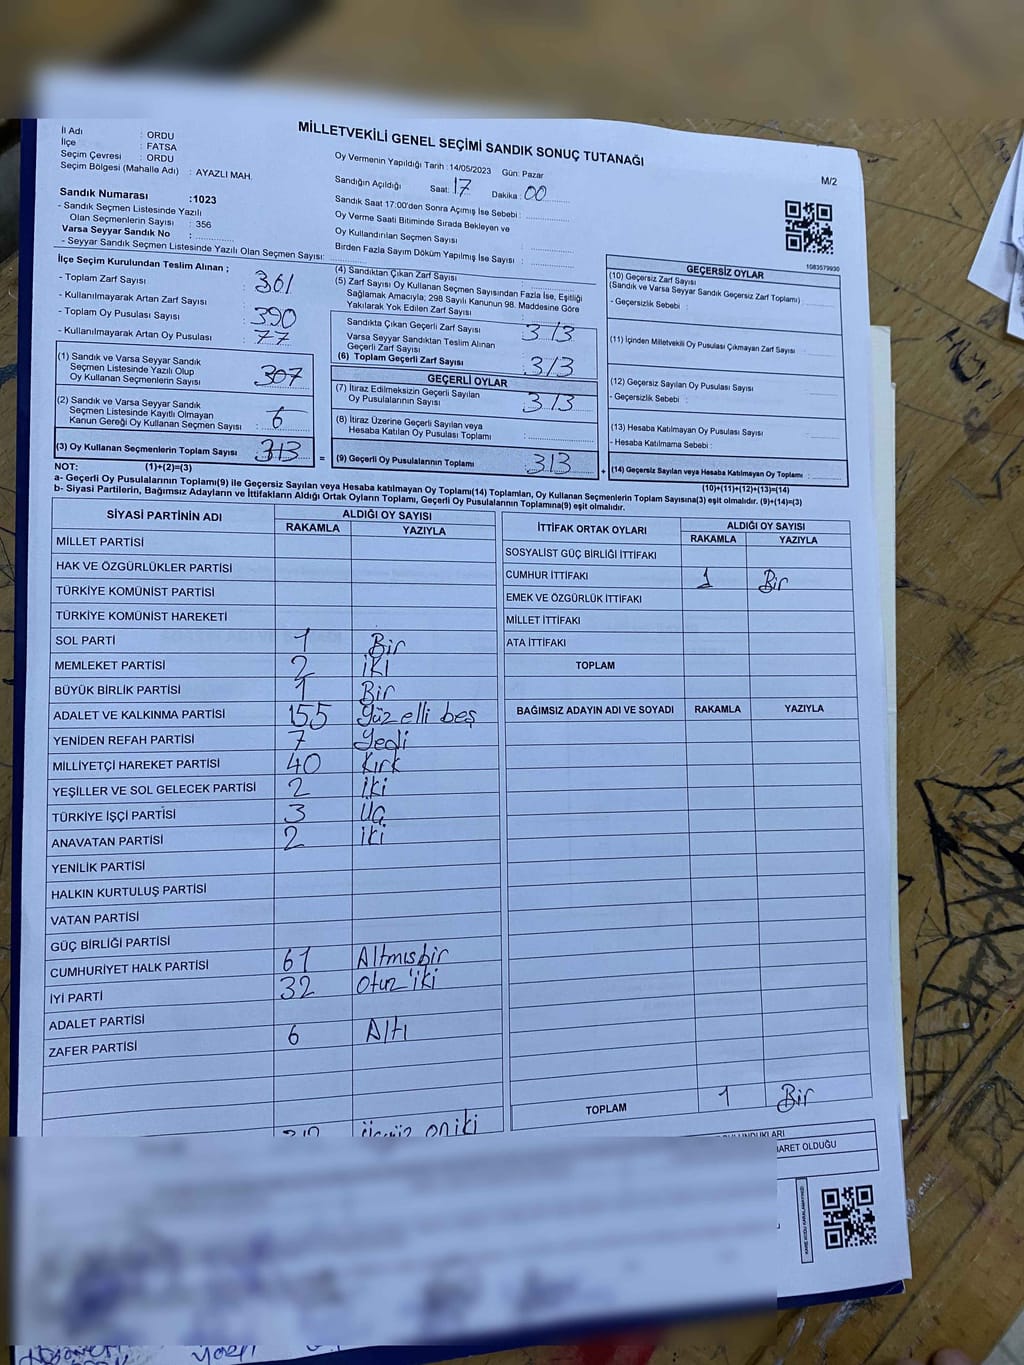 MİLLETVEKİLİ GENEL SEÇİMİ SANDIK SONUÇ TUTANAĞI
M/2
İl Adı : ORDU
İlçe : FATSA
Seçim Çevresi : ORDU
Seçim Bölgesi (Mahalle Adı) : AYAZLI MAH.
Sandık Numarası :1023
- Sandık Seçmen Listesinde Yazılı
Olan Seçmenlerin Sayısı : 356
Varsa Seyyar Sandık No :
- Seyyar Sandık Seçmen Listesinde Yazılı Olan Seçmen Sayısı:
Oy Vermenin Yapıldığı Tarih : 14/05/2023 Gün: Pazar
Sandığın Açıldığı Saat: 17 Dakika : 00
Sandık Saat 17:00'den Sonra Açımış İse Sebebi :
Oy Verme Saati Bitiminde Sırada Bekleyen ve
Oy Kullandırılan Seçmen Sayısı :
Birden Fazla Sayım Döküm Yapılmış İse Sayısı :
1583579930
İlçe Seçim Kurulundan Teslim Alınan ;
- Toplam Zarf Sayısı : 361
- Kullanılmayarak Artan Zarf Sayısı :
- Toplam Oy Pusulası Sayısı : 390
- Kullanılmayarak Artan Oy Pusulası : 77
(1) Sandık ve Varsa Seyyar Sandık
Seçmen Listesinde Yazılı Olup
Oy Kullanan Seçmenlerin Sayısı : 307
(2) Sandık ve Varsa Seyyar Sandık
Seçmen Listesinde Kayıtlı Olmayan
Kanun Gereği Oy Kullanan Seçmen Sayısı : 6
(3) Oy Kullanan Seçmenlerin Toplam Sayısı : 313 =
(4) Sandıktan Çıkan Zarf Sayısı :
(5) Zarf Sayısı Oy Kullanan Seçmen Sayısından Fazla İse, Eşitliği
Sağlamak Amacıyla; 298 Sayılı Kanunun 98. Maddesine Göre
Yakılarak Yok Edilen Zarf Sayısı :
Sandıkta Çıkan Geçerli Zarf Sayısı : 313
Varsa Seyyar Sandıktan Teslim Alınan
Geçerli Zarf Sayısı :
(6) Toplam Geçerli Zarf Sayısı : 313
GEÇERLİ OYLAR
(7) İtiraz Edilmeksizin Geçerli Sayılan
Oy Pusulalarının Sayısı : 313
(8) İtiraz Üzerine Geçerli Sayılan veya
Hesaba Katılan Oy Pusulası Toplamı :
(9) Geçerli Oy Pusulalarının Toplamı : 313 +
GEÇERSİZ OYLAR
(10) Geçersiz Zarf Sayısı
(Sandık ve Varsa Seyyar Sandık Geçersiz Zarf Toplamı) :
- Geçersizlik Sebebi :
(11) İçinden Milletvekili Oy Pusulası Çıkmayan Zarf Sayısı :
(12) Geçersiz Sayılan Oy Pusulası Sayısı :
- Geçersizlik Sebebi :
(13) Hesaba Katılmayan Oy Pusulası Sayısı :
- Hesaba Katılmama Sebebi :
(14) Geçersiz Sayılan veya Hesaba Katılmayan Oy Toplamı :
NOT: (1)+(2)=(3)
(10)+(11)+(12)+(13)=(14)
a- Geçerli Oy Pusulalarının Toplamı(9) ile Geçersiz Sayılan veya Hesaba katılmayan Oy Toplamı(14) Toplamları, Oy Kullanan Seçmenlerin Toplam Sayısına(3) eşit olmalıdır. (9)+(14)=(3)
b- Siyasi Partilerin, Bağımsız Adayların ve İttifakların Aldığı Ortak Oyların Toplamı, Geçerli Oy Pusulalarının Toplamına(9) eşit olmalıdır.
SİYASİ PARTİNİN ADI ALDIĞI OY SAYISI
RAKAMLA YAZIYLA
MİLLET PARTİSİ
HAK VE ÖZGÜRLÜKLER PARTİSİ
TÜRKİYE KOMÜNİST PARTİSİ
TÜRKİYE KOMÜNİST HAREKETİ
SOL PARTİ 1 Bir
MEMLEKET PARTİSİ 2 İKİ
BÜYÜK BİRLİK PARTİSİ 1 Bir
ADALET VE KALKINMA PARTİSİ 155 Yüz elli beş
YENİDEN REFAH PARTİSİ 7 Yedi
MİLLİYETÇİ HAREKET PARTİSİ 40 Kırk
YEŞİLLER VE SOL GELECEK PARTİSİ 2 İki
TÜRKİYE İŞÇİ PARTİSİ 3 Üç
ANAVATAN PARTİSİ 2 İki
YENİLİK PARTİSİ
HALKIN KURTULUŞ PARTİSİ
VATAN PARTİSİ
GÜÇ BİRLİĞİ PARTİSİ
CUMHURİYET HALK PARTİSİ 61 Altmışbir
İYİ PARTİ 32 Otuz'iki
ADALET PARTİSİ
ZAFER PARTİSİ 6 Altı
312 üçyüz oniki
İTTİFAK ORTAK OYLARI ALDIĞI OY SAYISI
RAKAMLA YAZIYLA
SOSYALİST GÜÇ BİRLİĞİ İTTİFAKI
CUMHUR İTTİFAKI 1 Bir
EMEK VE ÖZGÜRLÜK İTTİFAKI
MİLLET İTTİFAKI
ATA İTTİFAKI
TOPLAM
BAĞIMSIZ ADAYIN ADI VE SOYADI RAKAMLA YAZIYLA
TOPLAM 1 Bir